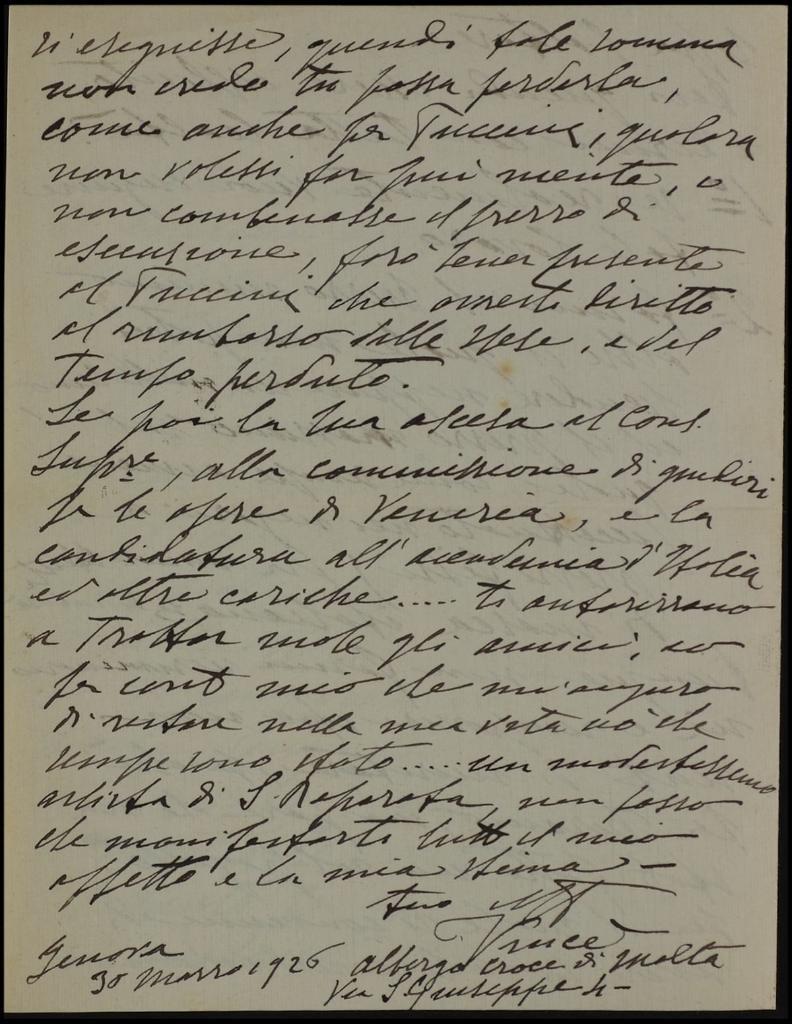 si eseguisse, quindi tale somma
non credo tu possa perderla,
come anche per Puccini, qualora
non volessi far più niente, o
non combinasse il prezzo di
esecuzione, farò tener presente
al Puccini che avresti diritto
al rimborso delle spese, e del
tempo perduto.
Se poi la tua ascesa al Cons.
Supre, alla commissione di giudizi
per le opere di Venezia, e la
candidatura all'accademia d'Italia
ed altre cariche..... ti autorizzano
a trattar male gli amici, io
per conto mio che mi auguro
di restare nella mia vita ciò che
sempre sono stato..... un modestissimo
artista di S. Reparata, non posso
che manifestarti tutto il mio
affetto e la mia stima—
tuo
Genova
30 Marzo 1926
albergo croce di Malta
Via S. Giuseppe 4—